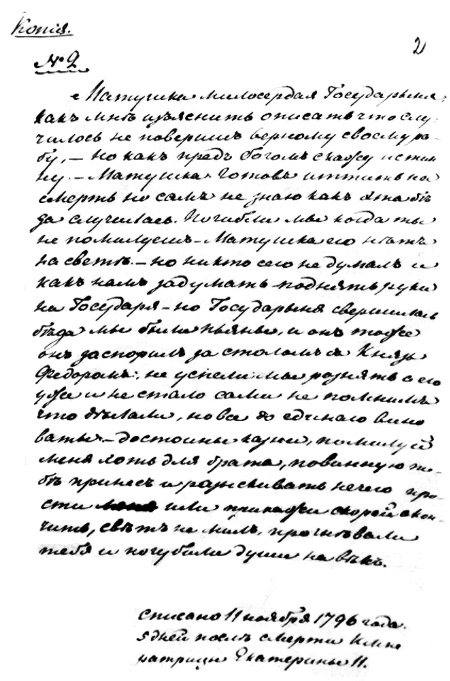 Копія.
2
№ 2
«Матушка милосердая Государыня,
какъ мнѣ изъяснить описать что слу-
чилось не повѣришъ верному своему ра-
бу, — но какъ предъ богомъ скажу исти-
ну. — Матушка готовъ иттить на
смерть но самъ не знаю какъ эта бѣ-
да случилась. Погибли мы когда ты
не помилуешъ — Матушка его нѣтъ
на свѣтѣ — но никто сего не думалъ и
какъ намъ задумать поднять руки
на Государя — но Государыня свершилась
бѣда мы были пьяны и онъ тоже
онъ заспорилъ за столомъ съ Князь
Федоромъ, не успели мы рознять а его
уже и не стало сами не помнимъ
что дѣлали, но все до единаго вино-
ваты — достойны казни, помилуй
меня хоть для брата, повинную те-
бѣ принесъ и разыскивать нечего про-
сти или прикажи скорей окон-
чить, свѣтъ не милъ, прогнѣвали
тебя и погубили души на вѣкъ.
Списано 11 ноября 1796 года.
5 дней послѣ смерти Импе-
ратрицы Екатерины II.